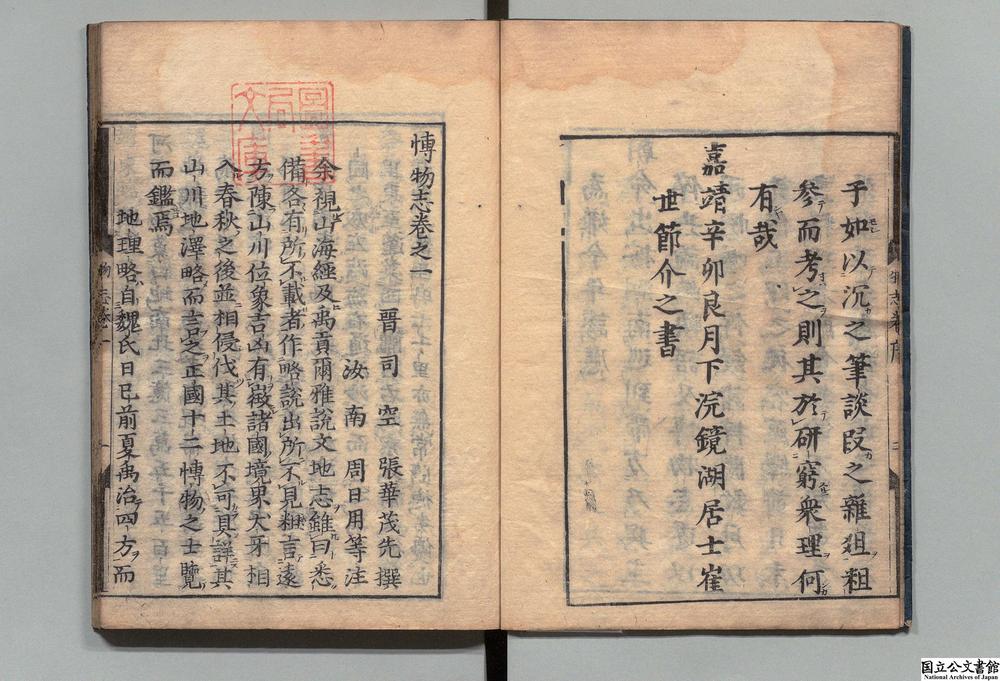 于如以沉之筆談段之雜狙粗
參而考之則其於研窮衆理何
有哉
嘉靖辛卯良月下浣鏡湖居士崔
世節介之書
圖書
局
文庫
博物志卷之一
晋司空張華茂先撰
汝南周日用等注
余視山海經及禹貢爾雅說文地志雖曰悉
備各有所不載者作略說出所不見粗言遠
方陳山川位象吉凶有徵諸國境界犬牙相
入春秋之後並相侵伐其土地不可具詳其
山川地澤略而言之正國十二博物之士覽
而鑑焉
地理略自魏氏日巳前夏禹治四方而
国立公文書館
National Archives of Japan